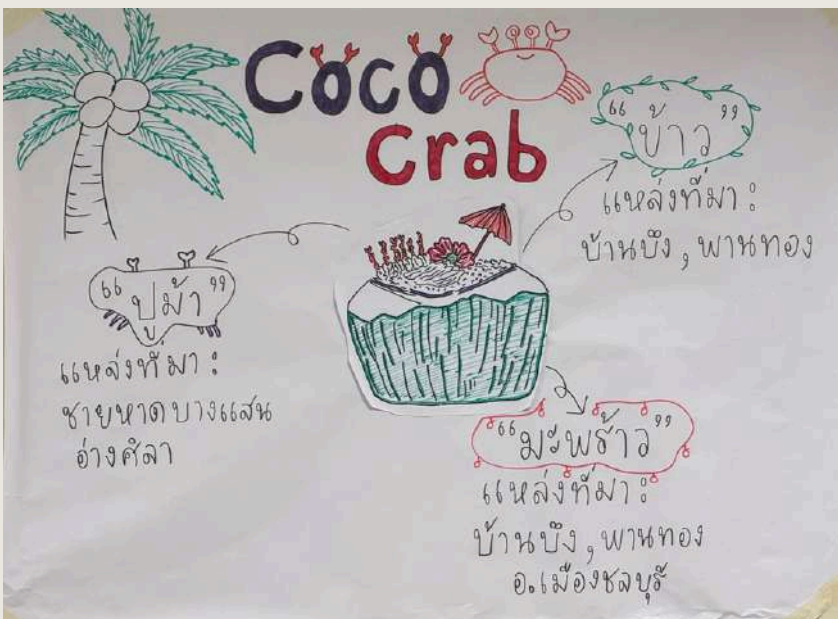 Coco
Crab
"ข้าว"
แหล่งที่มา :
บ้านบึง , พานทอง
"ปูม้า"
แหล่งที่มา :
ชายหาดบางแสน
อ่างศิลา
"มะพร้าว"
แหล่งที่มา :
บ้านบึง , พานทอง
อ.เมืองชลบุรี